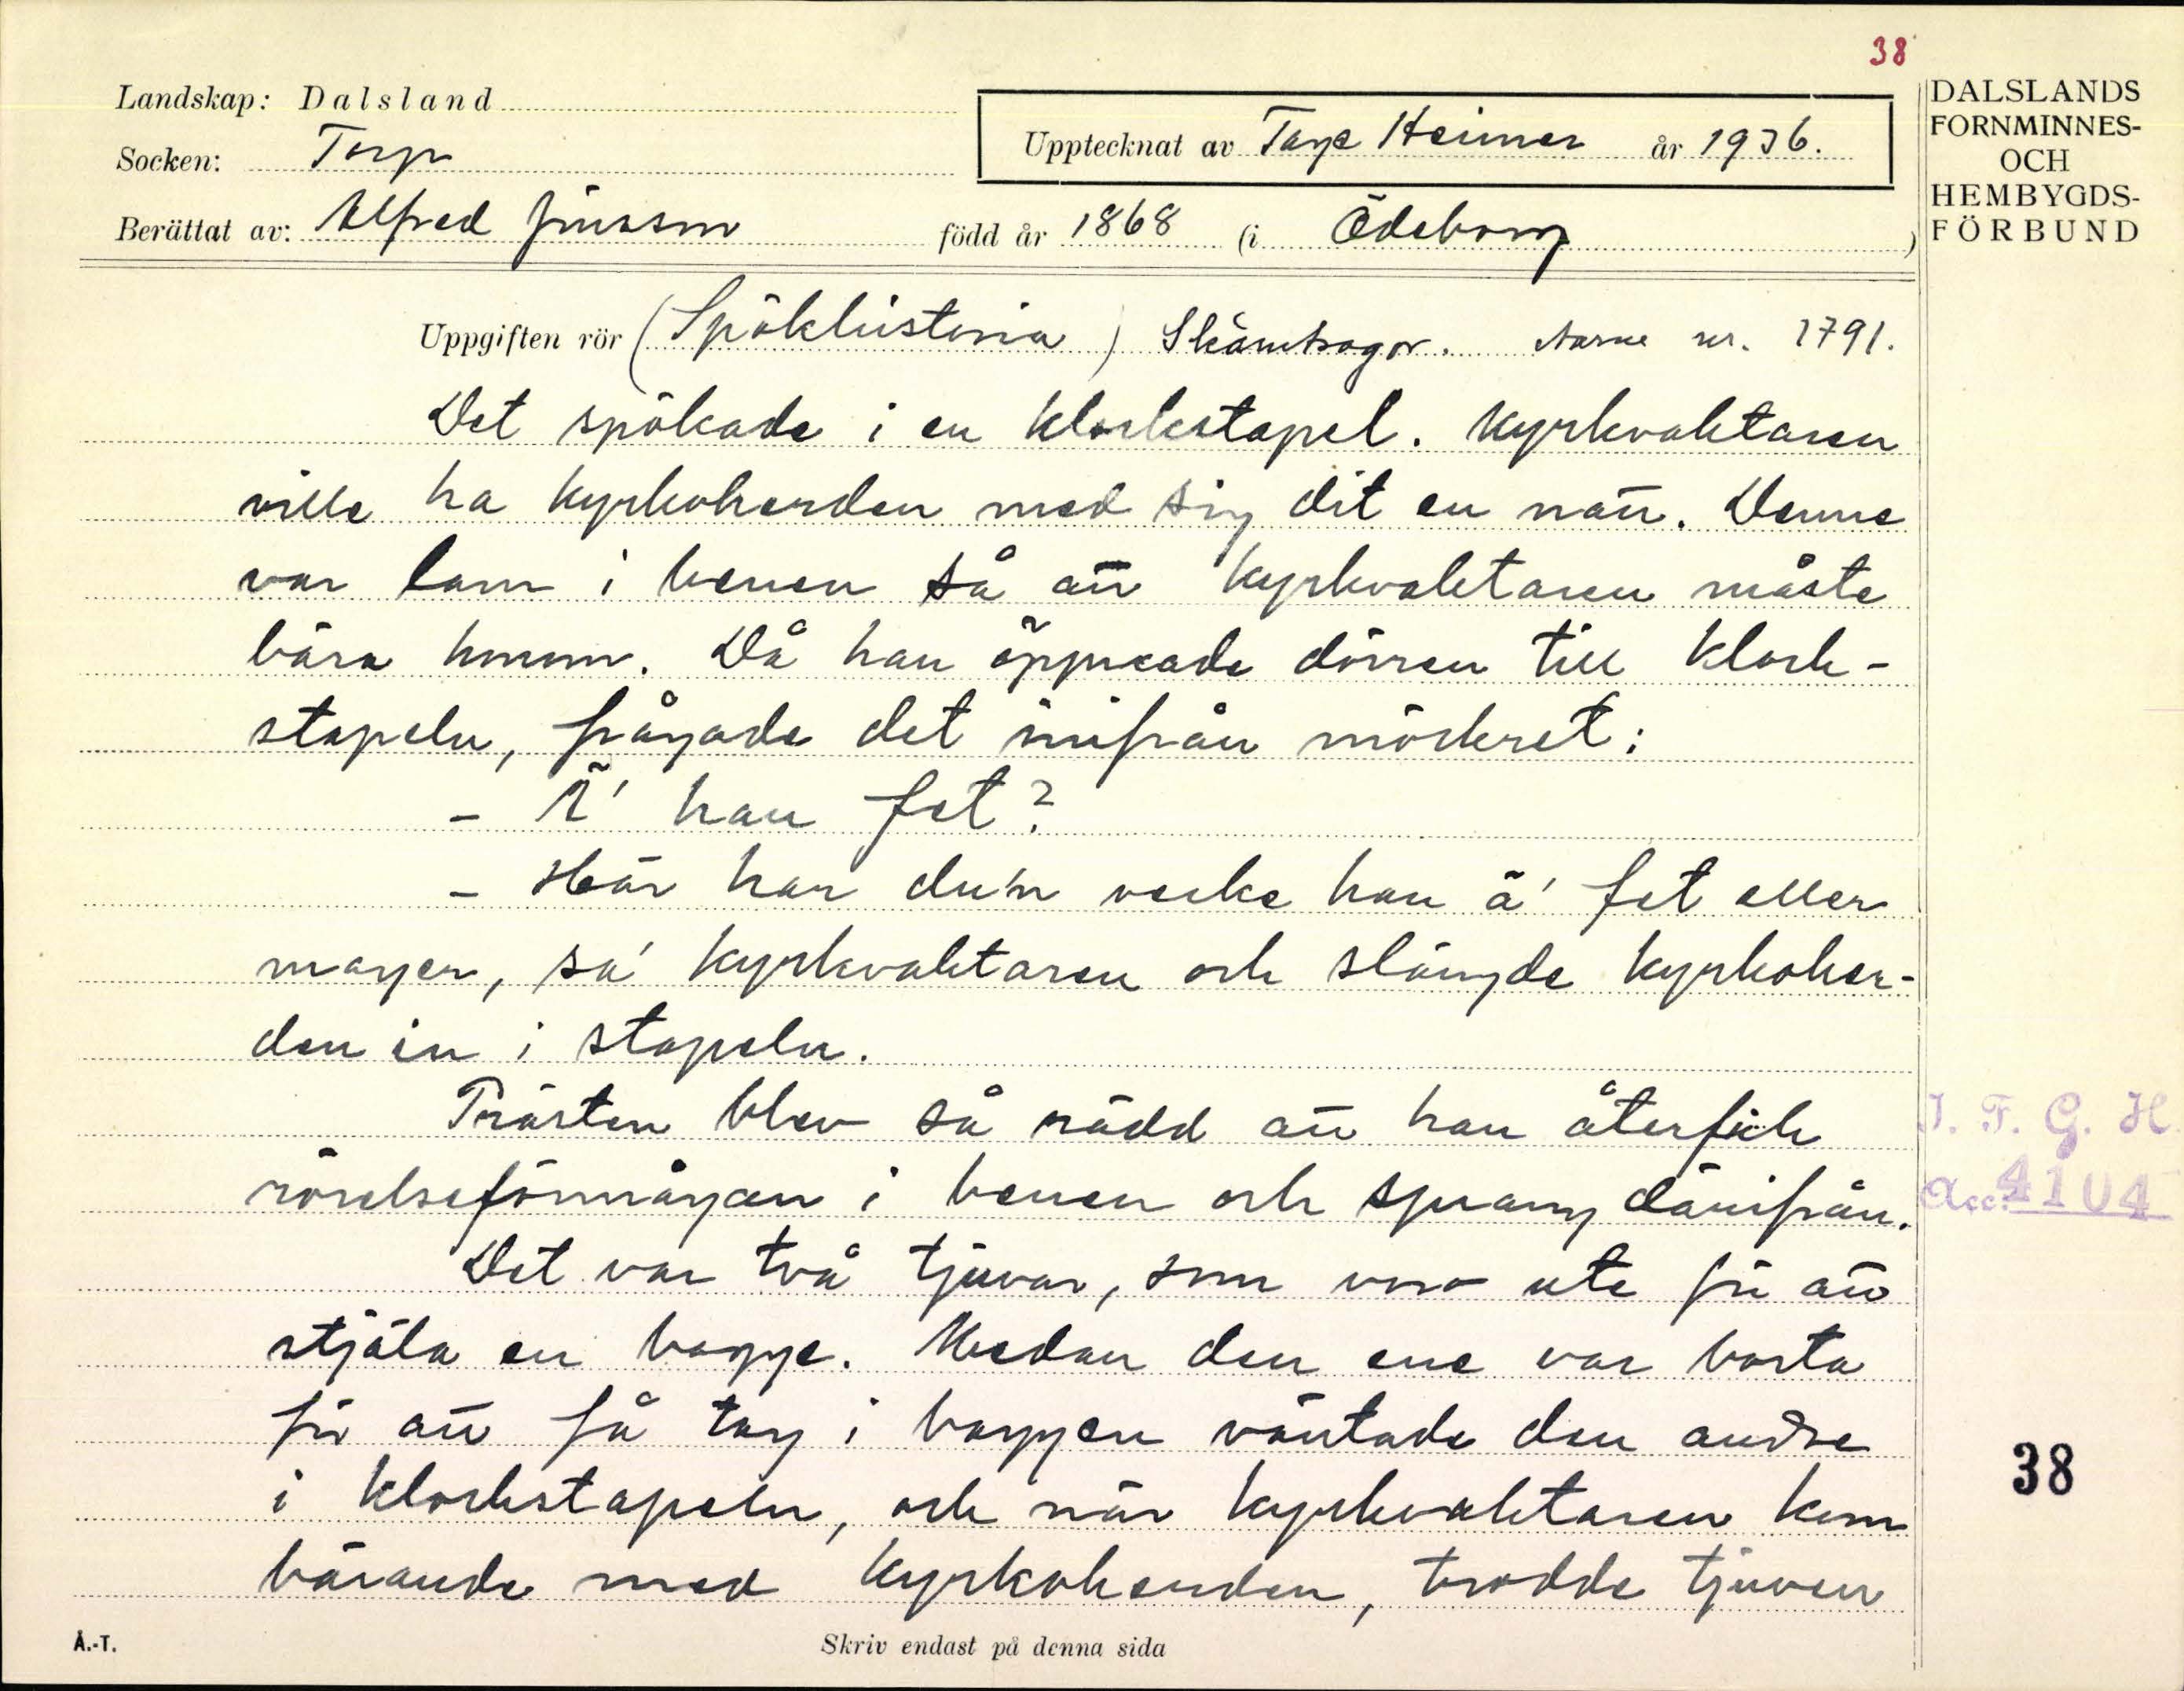 38
Landskap: Dalsland
Socken: Torp
Upptecknat av Tage Heimer år 1936.
Berättat av: Alfred Jonsson född år 1868 (i Ödeborg)
DALSLANDS
FORNMINNES-
OCH
HEMBYGDS-
FÖRBUND
Uppgiften rör (Spökhistoria) Skämtsagor. Aarne nr. 1791.
Det spökade i en klockstapel. Kyrkvaktaren
ville ha kyrkoherden med sig dit en natt. Denne
var lam i benen så att kyrkvaktaren måste
bära honom. Då han öppnade dörren till klock-
stapeln, frågade det inifrån mörkret:
- Ä' han fet?
- Här har du'n vecke han ä' fet eller
mager, sa' kyrkvaktaren och slängde kyrkoher-
den in i stapeln.
Prästen blev så rädd att han återfick
rörelseförmågan i benen och sprang därifrån.
Det var två tjuvar, som voro ute för att
stjäla en bagge. Medan den ene var borta
för att få tag i baggen väntade den andre
i klockstapeln, och när kyrkvaktaren kom
bärande med kyrkoherden, trodde tjuven
I. F. G. H.
Acc. 4104
38
Å.-T.
Skriv endast på denna sida